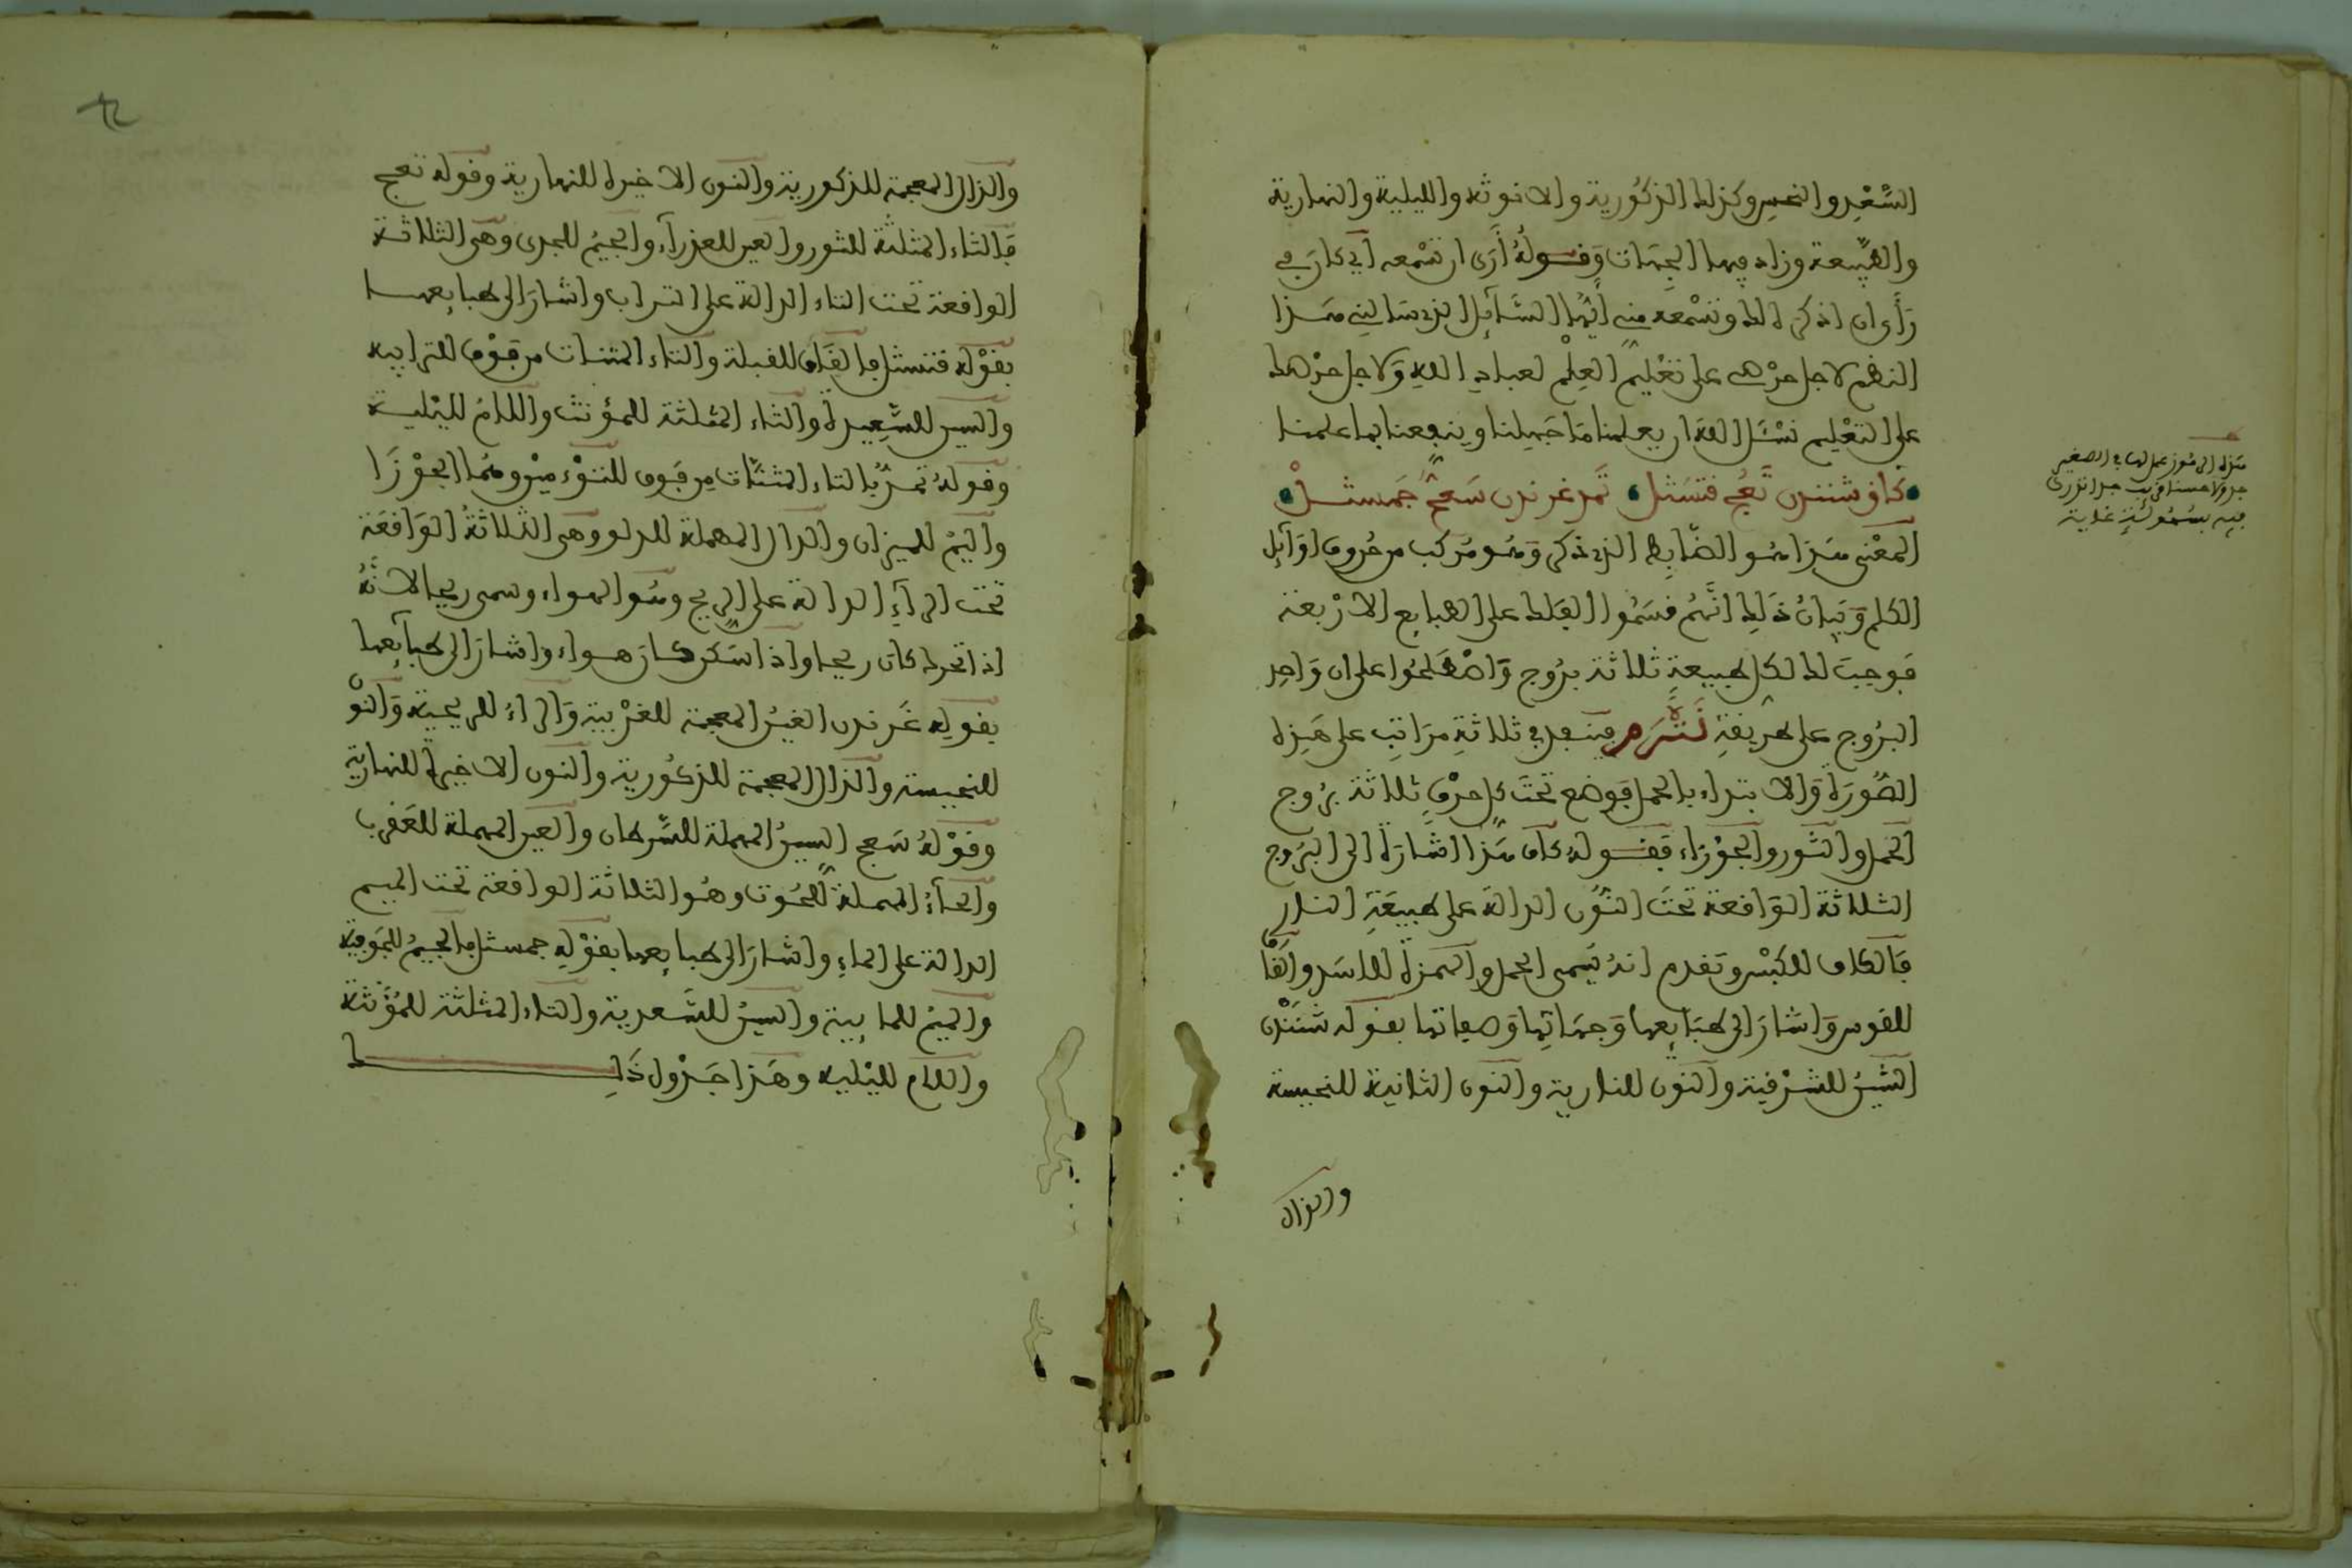 السَّعْدِ والنحس وكذلك الذكُورية والانوثة والليلية والنهارية
والطبيعة وزاد فيها الجِهَات وَقـولُهُ أَرَى ان تسْمعه اي كان في
رَأي ان اذكر ذلك وتسْمعه مني أيُّها السَّآئِل الذي سَالني هَـذا
النظم لاجل حرْصي على تعْليم العِلْم لعبادِ اللهِ وَلاجل حرْصك
على التعْليم نسْئَل اللهَ ان يعلمنا مَا جَهِلنا وينفعنا بما علمنا
كاف شننذن ثَعْج فتسَثل تَمَد غرنذن سَعحٌ جَمسثـلْ
المعْنى هَذا هُو الضّابِط الذي ذكر وَهُو مُركب من حُروف اوَآئل
الكلم وَبَيانُ ذَلِك انَّهُم قسَمُوا الفلك على الطبايع الارْبعة
فوجبَ لك لكل طبيعةٍ ثلاثة برُوج وَاصْطَلحُوا على ان وَاحد
البرُوج على طريقةِ نَتْرَم فينعد في ثلاثةِ مرَاتِب على هَذِه
الصُّورَة وَالابتداء بالحمل فوضع تحتَ كل حرْفٍ ثلاثة برُوج
الحَمل والثَور والجوْزاء فقـولهُ كاف هَذا اشارَة الى البرُوج
الثلاثة الوَاقعة تحتَ النُّون الدالة على طبيعَةِ النار
فَالكاف للكبْش وتقدم انهُ يسَمى الحمل والهمزة للاسَد والقَاْ
للقوس وَاشارَ الى طبَايعها وَجهَاتِها وَصفاتها بقوله شننَذن
الشّينُ للشرْقية والنّون للنارية والنون الثانية للنحيسة
والذال
هَذه الرمُوز عمل لها في الصغير
جدولا حسنا قريب جدا نزري
فيه بسُهُولَةٍ غاية
والذال المعجمة للذكورية والنون الاخيرة للنهارية وقوله ثعج
فَالثاء المثلثة للثور والعين للعذرآء والجيمُ للجدى وهي الثلاثة
الواقعة تحت التاء الدالة على التراب واشارَ الى طبايعهـا
بقوْله فتسثل فالفاء للقبلة والتاء المثنات من فوْق للترابية
والسين للسَّعِيدة والثاء المثلثة للمؤنث واللامُ لليْلية
وقولهُ تمَدّ بالتاء المثنَّات من فَوق للتوْءَمَيْن وهُما الجوْزَا
والميمُ للميزان والدال المهملة للدلو وهي الثلاثةُ الوَاقعَة
تحت الرآءِ الدالة على الريح وهُو الهواء وسمى ريحا لانّهُ
اذا تحرك كان ريحا واذا سَكن كـانَ هـواء واشارَ الى طبآيعها
بقوله غَرنذن الغينُ المعجمة للغرْبية وَالراءُ للريحية وَالنوْ
للنحيسة والذال المعجمة للذكُورية والنون الاخيرة للنهارية
وقوْلهُ سَعح السينُ المهملة للسَّرطان والعين المهملة للعَقرب
والحآءُ المهملة للحُوت وهُو الثلاثة الواقعة تحت الميم
الدالة على الماءِ واشارَ الى طبايعها بقوْلِه جمسثل فالجيمُ للجَوفية
والميمُ للمايية والسينُ للسَّعدية والثاء المثلثة للمُؤَنثة
واللام لليْلية وهَذا جَدْول ذَلِـك